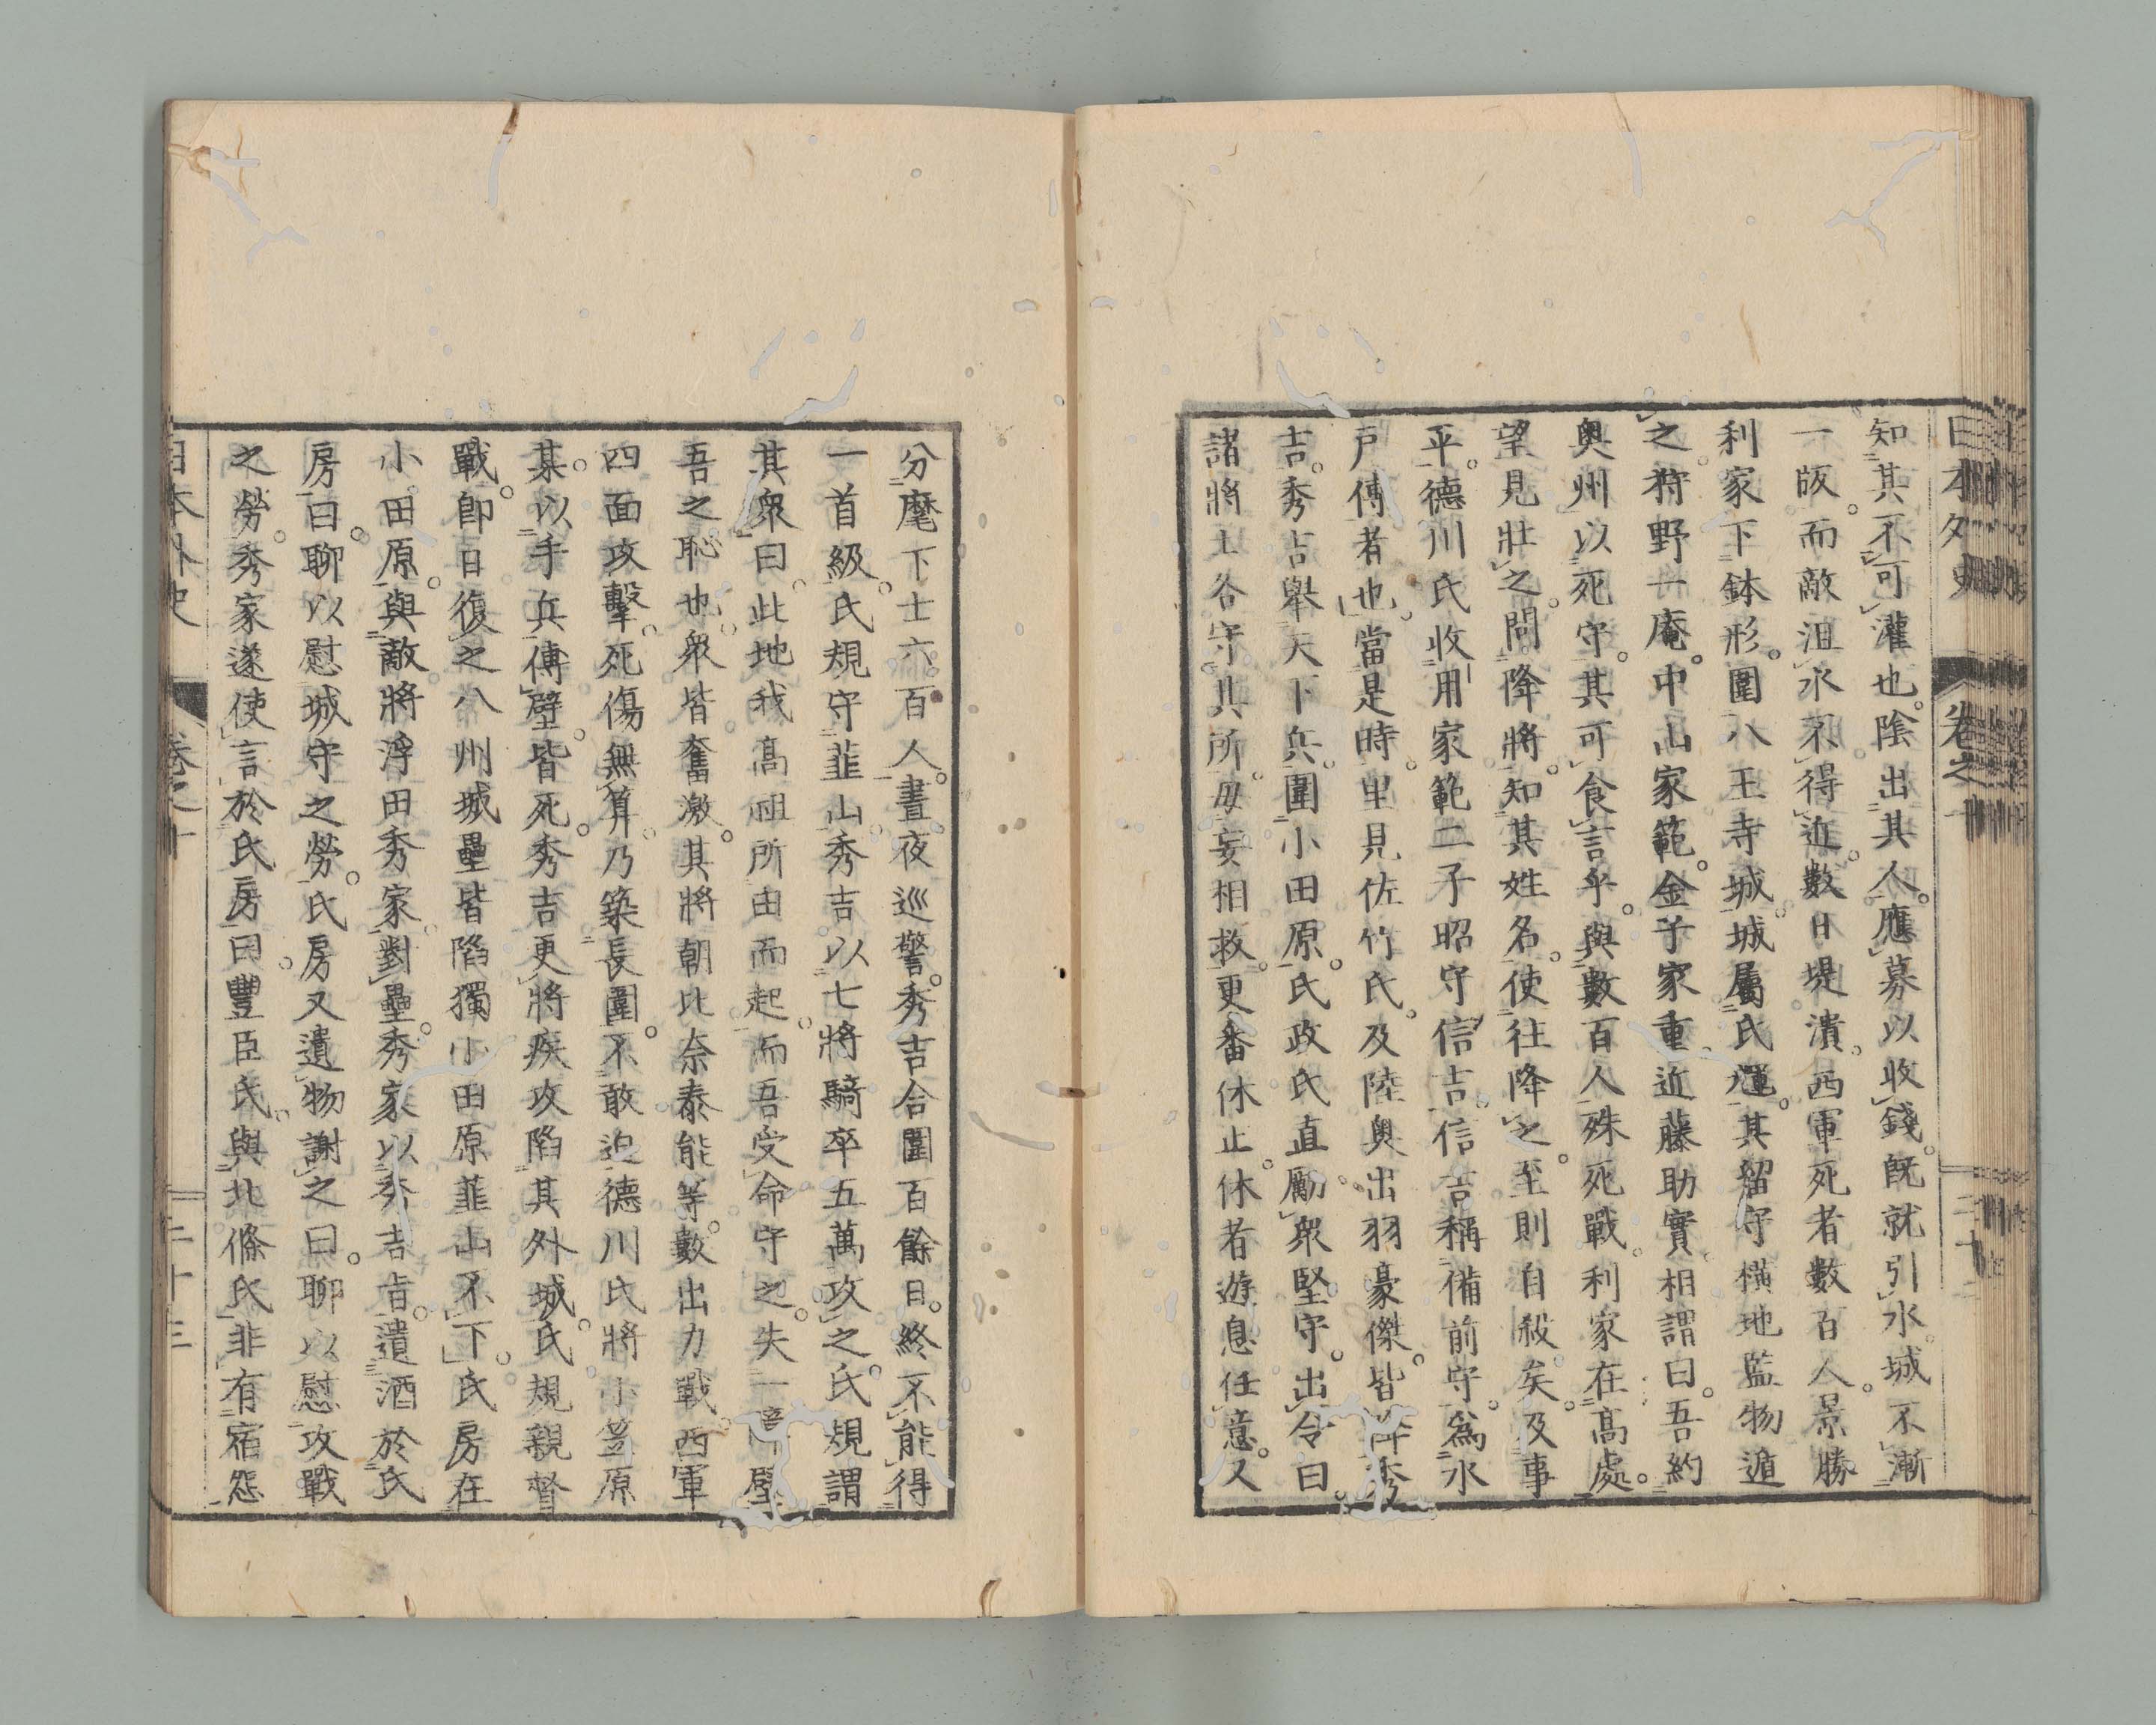 日本外史 卷之十
知其不可灌也。陰出其人。應募以收錢。既就引水。城不漸
一版。而敵沮水不得近。數日堤潰。西軍死者數百人。景勝
利家下鉢形。圍八王寺城。城屬氏輝。其留守橫地監物遁
之。狩野一庵。中山家範。金子家重。近藤助實。相謂曰。吾約
奧州以死守。其可食言乎。與數百人殊死戰。利家在高處。
望見壯之。問降將。知其姓名。使往降之。至則自殺矣。及事
平。德川氏收用家範二子昭守信吉。信吉稱備前守。爲水
戸傅者也。當是時。里見佐竹氏。及陸奧出羽豪傑。皆降秀
吉。秀吉舉天下兵。圍小田原。氏政氏直勵衆堅守。出令曰。
諸將士各守其所。毋妄相救。更番休止。休者遊息任意。又
分麾下士六百人。晝夜巡警。秀吉合圍百餘日。終不能得
一首級。氏規守韮山。秀吉以七將騎卒五萬攻之。氏規謂
其衆曰。此地我高祖所由而起。而吾受命守之。失一障壁
吾之恥也。衆皆奮激。其將朝比奈泰能等。數出力戰。西軍
四面攻擊。死傷無算。乃築長圍。不敢迫。德川氏將小笠原
某。以手兵傅壁。皆死。秀吉更將疾攻陷其外城。氏規親督
戰。卽日復之。八州城壘皆陷。獨小田原韮山不下。氏房在
小田原。與敵將浮田秀家對壘。秀家以秀吉旨。遺酒於氏
房曰。聊以慰城守之勞。氏房又遺物謝之曰。聊以慰攻戰
之勞。秀家遂使言於氏房曰。豐臣氏。與北條氏。非有宿怨
日本外史 卷之十 二十三